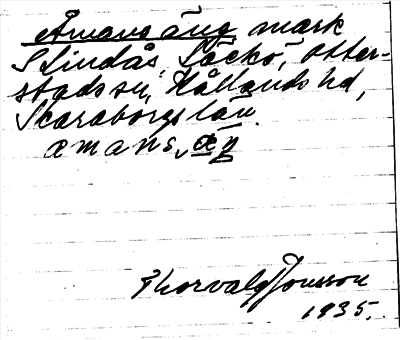 Åmans äng mark
S Lindås, Läckö, Otter-
stads sn, Kållands hd,
Skaraborgs län.
æmans, æŋ
Thorvald Jonsson
1935.